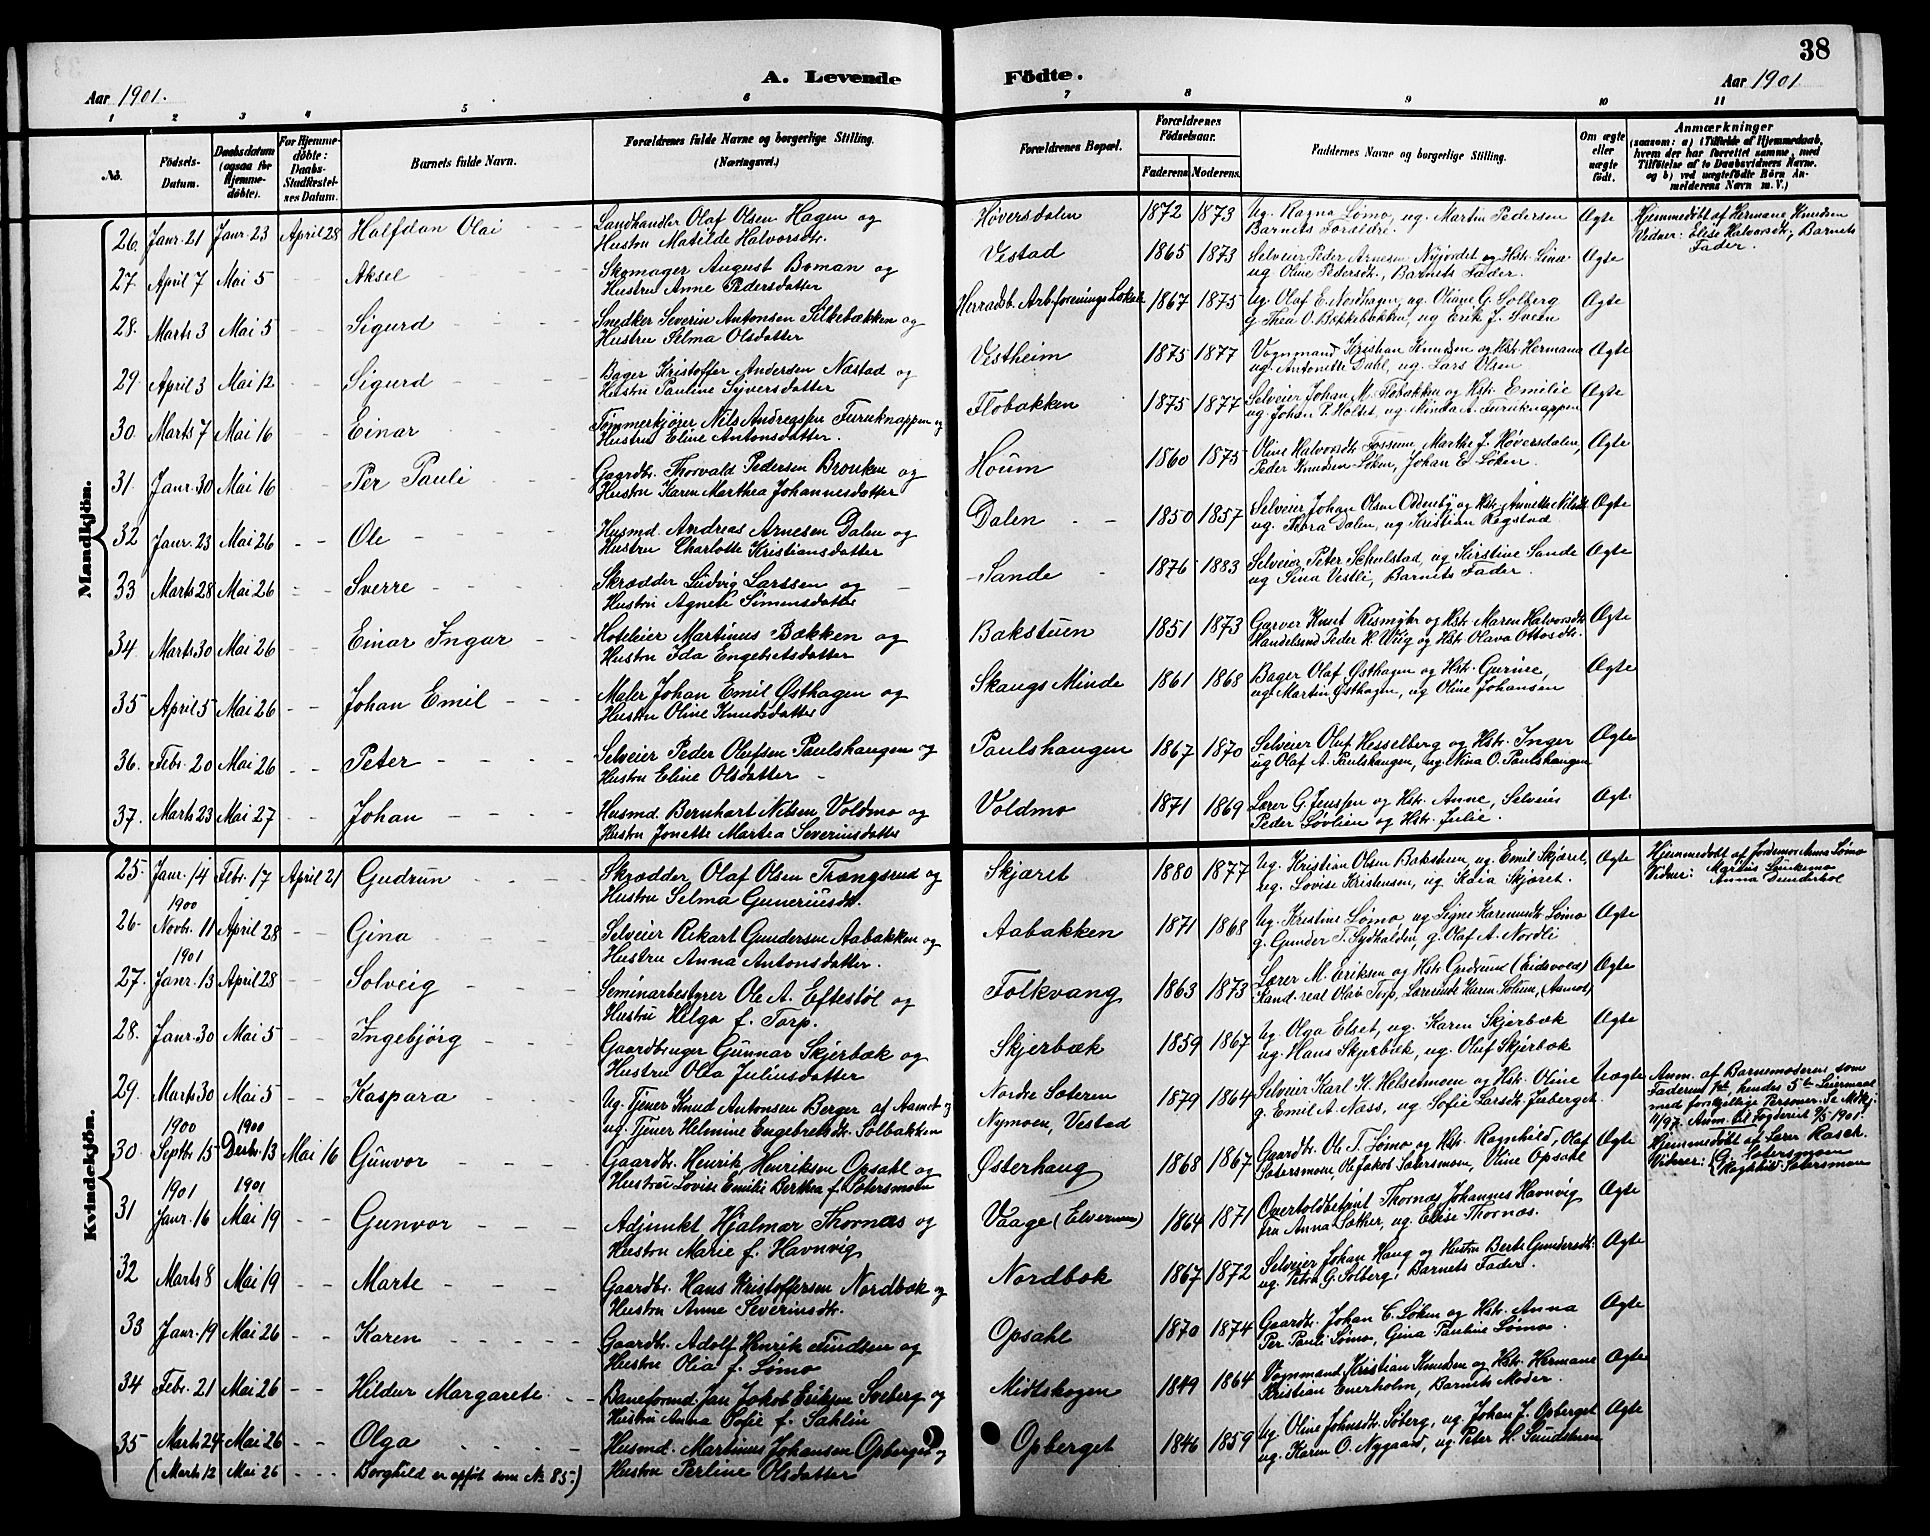 38
A. Levende Födte.
Aar 1901.
Aar 1901
1 2 3 4 5 6 7 8 9 10 11
No.
Födsels-Datum.
Daabsdatum (ogsaa for Hjemmedöbte).
For Hjemmedöbte: Daabs-Stadfæstelsens Datum.
Barnets fulde Navn.
Forældrenes fulde Navne og borgerlige Stilling. (Næringsvei.)
Forældrenes Bopæl.
Forældrenes Födselsaar.
Faderens Moderens.
Faddernes Navne og borgerlige Stilling.
Om ægte eller uægte födt.
Anmærkninger (saasom: a) i Tilfælde af Hjemmedaab, hvem der har forrettet samme, med Tilföielse af to Daabsvidners Navne, og b) ved uægtefödte Börn Anmelderens Navn m. V.)
Mandkjön.
26. Janr. 21 Janr. 23 April 28 Halfdan Olai Landhandler Olaf Olsen Hagen og Høversdalen 1872 1873 Ug. Ragna Lømo, ug. Martin Pedersen Ægte Hjemmedøbt af Hermane Knudsen
Hustru Matilde Halvorsdtr. Barnets Forældre. Vidner: Elise Halvorsdtr., Barnets Fader.
27. April 7 Mai 5 Aksel Skomager August Boman og Vestad 1865 1873 Selveier Peder Arnesen Nyjordet og Hstr. Lina Ægte
Hustru Anne Pedersdatter ug. Oline Pedersdtr., Barnets Fader.
28. Marts 3 Mai 5 Sigurd Snedker Severin Antonsen Silkebækken og Herradsb. Arb.forenings Lokale 1867 1875 Ug. Olaf E. Nordhagen, ug. Oliane G. Solberg Ægte
Hustru Selma Olsdatter g. Thea O. Bækkebakken, ug Erik J. Sveen
29. April 3 Mai 12 Sigurd Bager Kristoffer Andersen Næstad og Vestheim 1875 1877 Vognmand Kristian Knudsen og Hstr. Hermana Ægte
Hustru Pauline Syversdatter ug. Antonette Dahl, ug. Lars Olsen
30. Marts 7 Mai 16 Einar Tømmerkjører Nils Andreassen Furuknappen og Flobakken 1875 1877 Selveier Johan M. Flobakken og Hstr. Emilie Ægte
Hustru Eline Antonsdatter. ug Johan P. Holtet, ug. Minda A. Furuknappen
31. Janr. 30 Mai 16 Per Pauli Gaardbr. Thorvald Pedersen Brouken og Houm 1860 1875 Oline Halvorsdtr. Fossum, Marthe J. Høversdalen, Ægte
Hustru Karen Marthea Johannesdatter Peder Knudsen Løken, Johan E. Løken.
32 Janr. 23 Mai 26 Ole Husmd. Andreas Arnesen Dalen og Dalen 1850 1857 Selveier Johan Olsen Oddenby og Hstr. Annette Nilsdtr. Ægte
Hustru Charlotte Kristiansdatter ug. Thora Dalen, ug Kristian Rogstad
33 Marts 28 Mai 26 Sverre Skrædder Ludvig Larssen og Sande 1876 1883 Selveier Peter Schulstad, ug Kirstine Sande Ægte
Hustru Agnete Simensdatter ug Sina Vestli, Barnets Fader.
34 Marts 30 Mai 26 Einar Ingar Hoteleier Martinus Bækken og Bakstuen 1851 1873 Garver Knut Rismyhr og Hstr. Maren Halvorsdtr. Ægte
Hustru Ida Engebretsdatter Handelsmd Peder H. Wiig og Hstr. Olava Ottosdtr.
35 April 5 Mai 26 Johan Emil Maler Johan Emil Østhagen og Skaugs Minde 1861 1868 Bager Olaf Østhagen og Hstr. Gurine, Ægte
Hustru Oline Knudsdatter ug. Martin Østhagen, ug Oline Johansen
36. Febr. 20 Mai 26 Peter Selveier Peder Olufsen Paulshaugen og Paulshaugen 1867 1870 Selveier Oluf Hesselberg og Hstr. Inger Ægte
Hustru Eline Olsdatter ug Olaf A. Paulshaugen, ug. Nina O. Paulshaugen
37. Marts 23 Mai 27 Johan Husmd. Bernhart Nilsen Voldmo og Voldmo 1871 1869 Lærer G. Jenssen og Hstr. Anne, Selveier Ægt.
Hustru Jonette Martea Severinsdatter Peder Løvlien og Hstr. Julie.
Kvindekjön.
25. Janr. 14 Febr. 17 April 21 Gudrun Skrædder Olaf Olsen Trængsrud og Skjæret 1880 1877 Ug. Kristian Olsen Bakstuen, ug. Emil Skjæret, Ægte Hjemmedøbt af Jordemor Anna Lømo
Hustru Selma Guneriusdt. ug. Lovise Kristensen, ug Kaia Skjæret. Vidner: Marius Lunkemo Anna Dunderhol
26. 1900 Novb. 11 April 28 Gina Selveier Rikart Gundersen Aabakken og Aabakken 1871 1868 Ug. Kristine Lømo ug Signe Karemsdtr. Lømo Ægte
Hustru Anna Antonsdatter. g. Gunder T. Sydhalden, g. Olaf A. Nordli
27. 1901 Janr. 13 April 28 Solveig Seminarbestyrer Ole A. Eftestøl og Folkvang 1863 1873 Lærer M. Eriksen og Hstr. Gudrund (Eidsvold) Ægte
Hustru Helga f. Torp. Kand. real Olav Torp, Lærerinde Karen Solum, (Aamot)
28. Janr. 30 Mai 5 Ingebjörg Gaardbruger Gunnar Skjerbæk og Skjerbæk 1859 1867 Ug. Olga Elset, ug. Karen Skjerbæk Ægte
Hustru Olea Juliusdatter ug. Hans Skjerbæk, ug. Oluf Skjerbæk
29. Marts 30 Mai 5 Kaspara Ug. Tjener Knud Antonsen Berger af Aamot og Nordre Sæteren 1879 1864 Selveier Karl K. Helsetmoen og Hstr. Oline Uægte Anm. af Barnemoderen som
ug. Tjener Helmine Engebretsdtr. Solbakken Nymoen, Vestad g. Emil A. Næss, ug. Sofie Larsdtr. Juberget. Faderens 1st, hendes 5te Leiermaal med forskjellige Personer. Anm. til Fogderiet 9/5 1901.
30. 1900 Septbr. 15 1900 Decbr. 13 Mai 16 Gunvor Gaardbr. Henrik Henriksen Opsahl og Østerhaug 1868 1867 Gaardbr. Ole T. Lømo og Hstr. Ragnhild, Olaf Ægte Hjemmedøbt af Lærer Rasch.
Hustru Lovise Emilie Berthea f. Sætersmoen Sætersmoen, Ole Jakob Sætersmoen, Oline Opsahl Vidner: G. Sætersmoen Ragnhild Sætersmoen
31 1901 Janr. 16 1901 Mai 19 Gunvor Adjunkt Hjalmar Thornæs og Vaage (Elverum) 1864 1871 Overtoldbetjent Thornæs, Johannes Havnvig Ægte
Hustru Marie f. Havnvig Fru Anna Sæther, ug. Elise Thornæs.
32 Marts 8 Mai 19 Marte Gaardbr. Hans Kristoffersen Nordbæk og Nordbæk 1867 1872 Selveier Johan Haug og Hustru Berte Gundersdtr. Ægte
Hustru Anne Severinsdtr. ug. Petra G. Solberg, Barnets Fader.
33 Janr. 19 Mai 26 Karen Gaardbr. Adolf Henrik Findsen og Opsahl 1870 1874 Gaardbr. Johan C. Løken og Hstr. Anna Ægte
Hustru Olia f. Lømo Per Pauli Lømo, Gina Pauline Lømo.
34 Febr. 21 Mai 26 Hildur Margarete Baneformd. Jan Jakob Eriksen Sorberg og Midtskogen 1849 1864 Vognmand Kristian Knudsen og Hstr. Hermane Ægte
Hustru Anna Sofie f. Sahlin Kristian Enerholm, Barnets Moder.
35 Marts 24 Mai 26 Olga Husmd. Martinus Johansen Opberget og Opberget 1846 1859 Ug. Oline Johnsdtr. Søberg, ug. Johan J. Opberget Ægte
(Marts 12 Mai 26 Borghild er opført som No 85.) Hustru Perline Olsdatter ug. Karen O. Nygaard, ug. Peter H. Sundetmoen